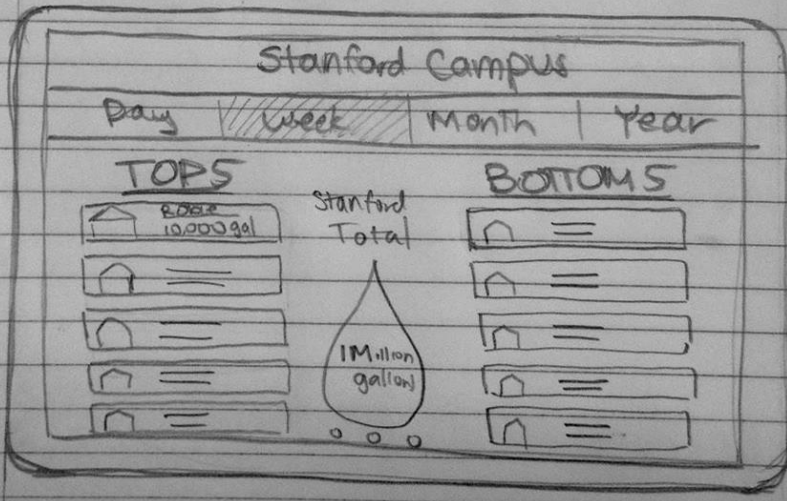 Stanford Campus
Day Week Month Year
TOP 5
10,000 gal
Stanford
Total
1 Million
gallons
BOTTOM 5